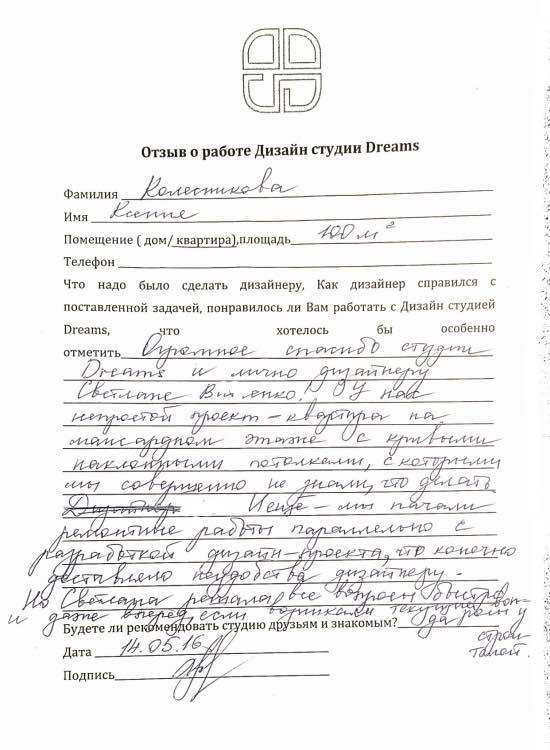 Отзыв о работе Дизайн студии Dreams
Фамилия Колесникова
Имя Ксение
Помещение ( дом/ квартира),площадь 100 м²
Телефон
Что надо было сделать дизайнеру, Как дизайнер справился с
поставленной задачей, понравилось ли Вам работать с Дизайн студией
Dreams, что хотелось бы особенно
отметить Огромное спасибо студии
Dreams и лично дизайнеру
Светлане! У нас
непростой проект – квартира на
мансардном этаже с кривыми
наклонными потолками, с которыми
мы совершенно не знали, что делать
Дизайнер Ксение – мы начали
ремонтные работы параллельно с
разработкой дизайн-проекта, что конечно
доставляло неудобства дизайнеру.
Но Светлана решала все вопросы быстро
и даже вперед, если возникали текущие
Будете ли рекомендовать студию друзьям и знакомым? да
строи
Дата 14.05.16
Подпись